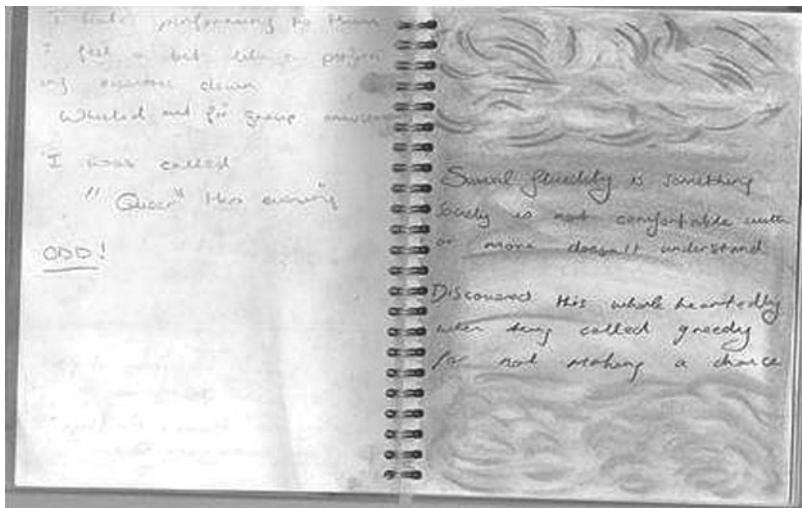 I hate performing to them
I feel a bit like a
down
and for group
I was called
"Queer" this evening
ODD!
Sexual fluidity is something
Society is not comfortable with
or more doesn't understand
Discovered this whole heartedly
when being called greedy
for not making a choice